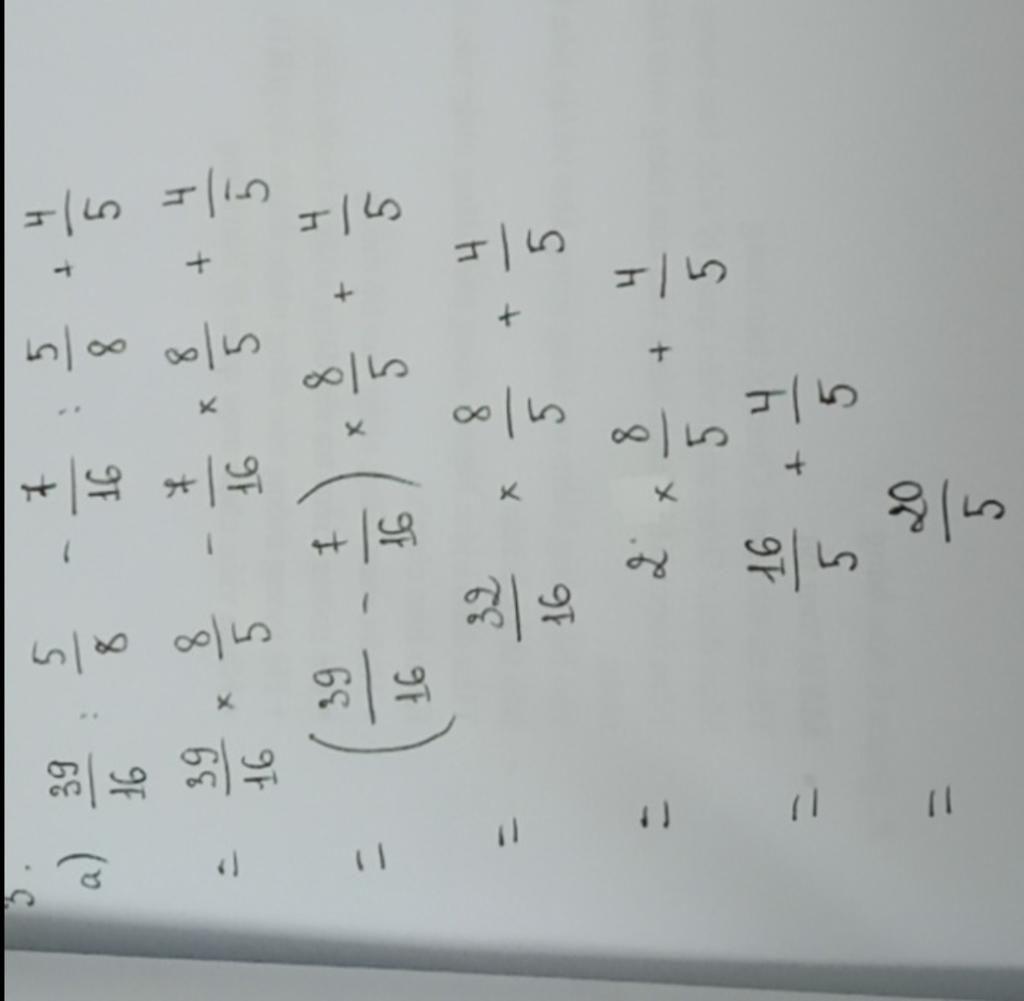 3.
a) 39/16 : 5/8 - 7/16 : 5/8 + 4/5
= 39/16 × 8/5 - 7/16 × 8/5 + 4/5
= (39/16 - 7/16) × 8/5 + 4/5
= 32/16 × 8/5 + 4/5
= 2 × 8/5 + 4/5
= 16/5 + 4/5
= 20/5